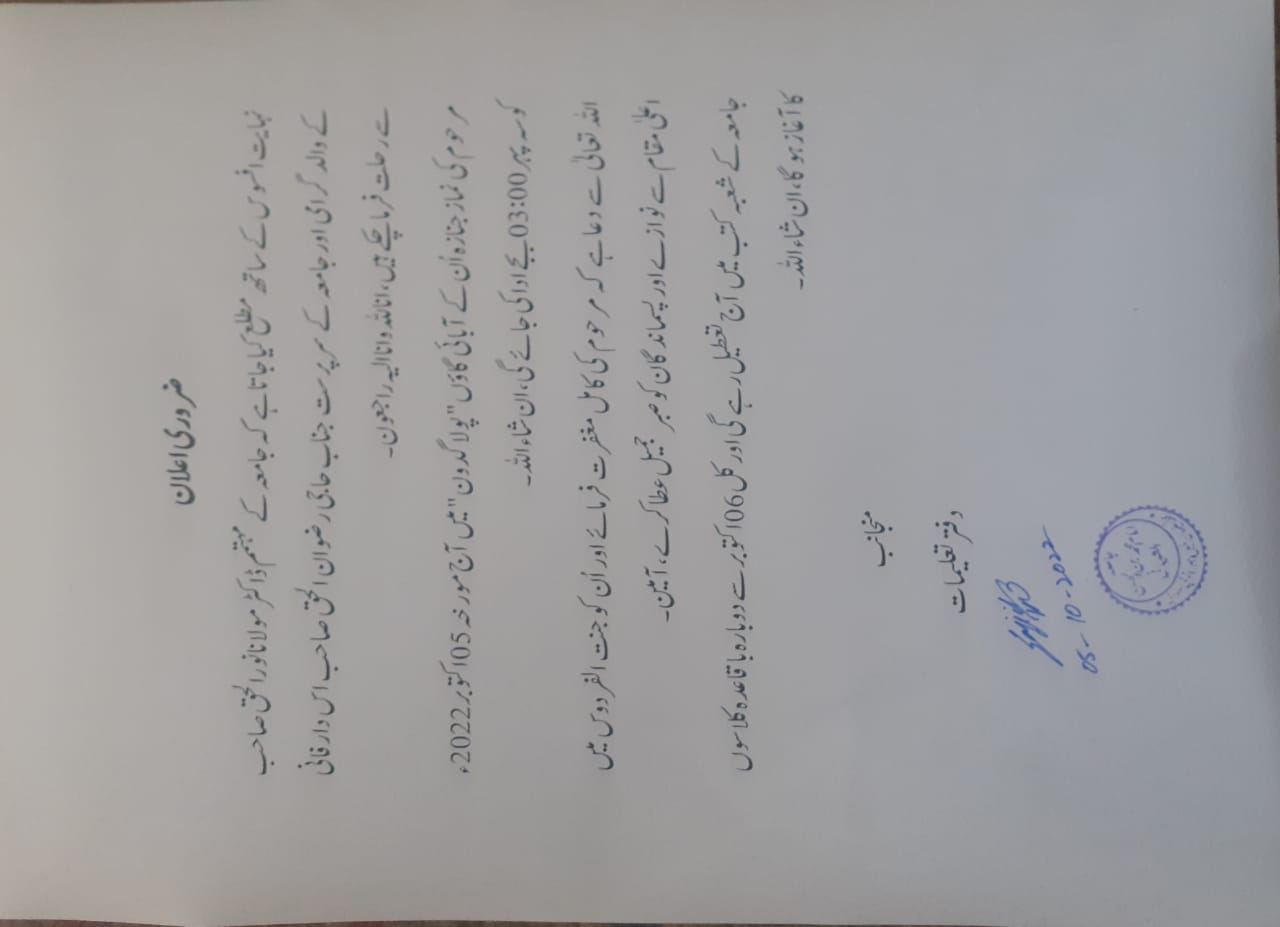 ضروری اعلان
نہایت افسوس کے ساتھ مطلع کیا جاتا ہے کہ جامعہ کے مہتمم ڈاکٹر مولانا نور الحق صاحب
کے والد گرامی اور جامعہ کے سرپرست جناب حاجی رضوان الحق صاحب اس دار فانی
سے رحلت فرما چکے ہیں، انا للہ وانا الیہ راجعون۔
مرحوم کی نماز جنازہ اُن کے آبائی گاؤں "پولا گدون" میں آج مورخہ 05 اکتوبر 2022ء
کو سہ پہر 03:00 بجے ادا کی جائے گی، ان شاء اللہ۔
اللہ تعالیٰ سے دعا ہے کہ مرحوم کی کامل مغفرت فرمائے اور اُن کو جنت الفردوس میں
اعلیٰ مقام سے نوازے اور پسماندگان کو صبر جمیل عطا کرے، آمین۔
جامعہ کے شعبہ کتب میں آج تعطیل رہے گی اور کل 06 اکتوبر سے دوبارہ باقاعدہ کلاسوں
کا آغاز ہو گا، ان شاء اللہ۔
منجانب
دفتر تعلیمات
05-10-2022